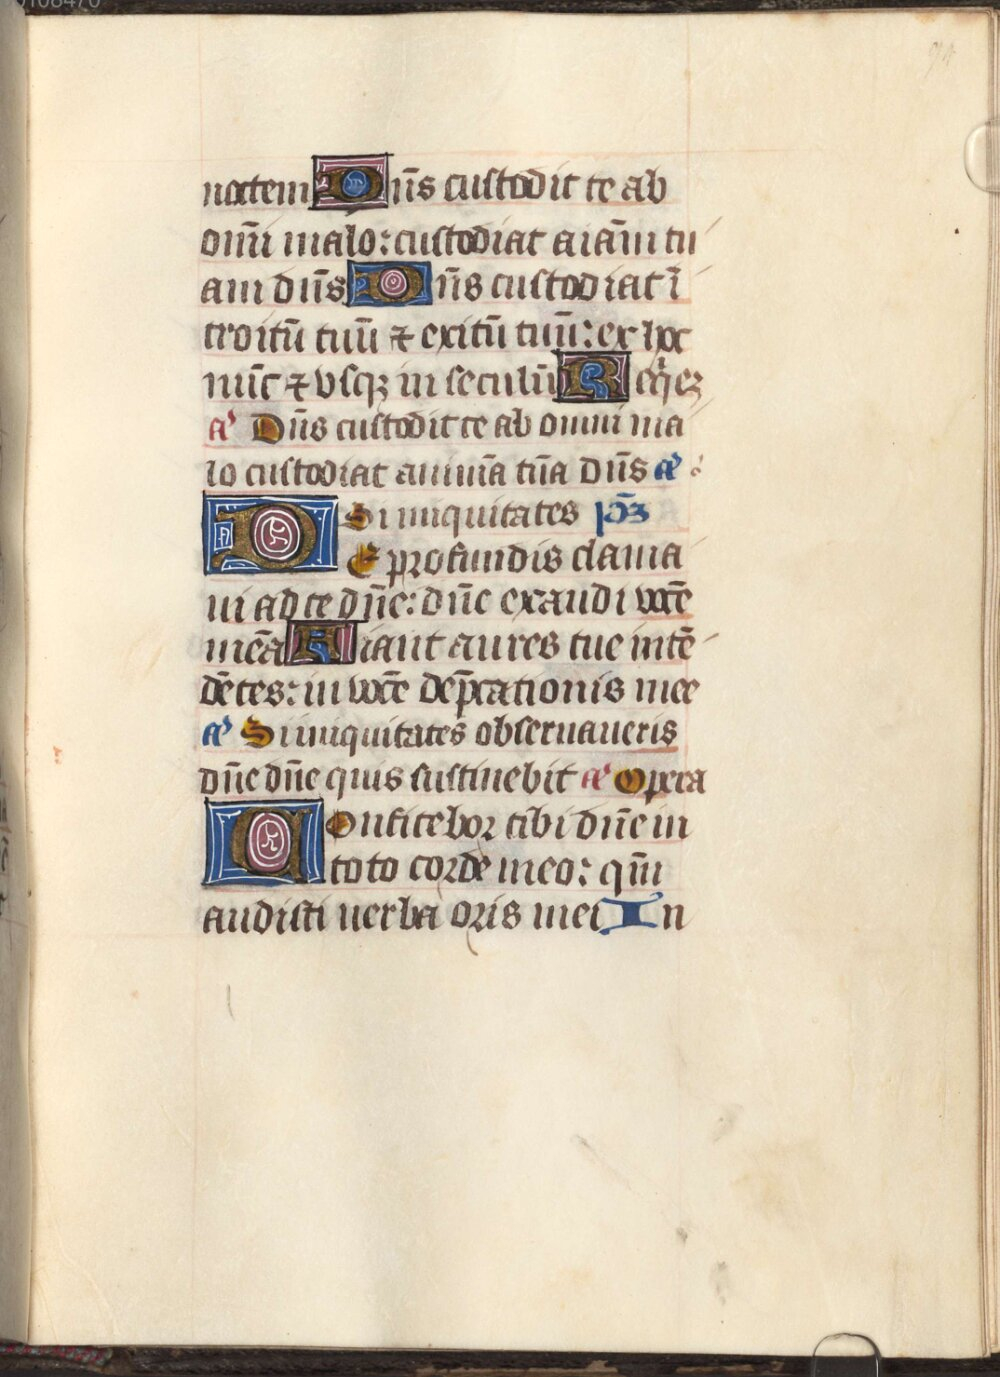 noctem Dn̄s custodit te ab
omni malo: custodiat aīam tu
am dn̄s Dn̄s custodiat ī
troitū tuū ⁊ exitū tuū: ex hoc
nūc ⁊ vsqꝫ in seculū Req̄ez
a' Dn̄s custodit te ab omni ma
lo custodiat animā tuā dn̄s a'
Si iniquitates ps̄
De profundis clama
ui ad te dn̄e: dn̄e exaudi vocē
meā Fiant aures tue intē
dētes: in vocē dep̄cationis mee
a' Si iniquitates obseruaueris
dn̄e dn̄e quis sustinebit a' Opera
Confitebor tibi dn̄e in
toto corde meo: qm̄
audisti uerba oris mei In